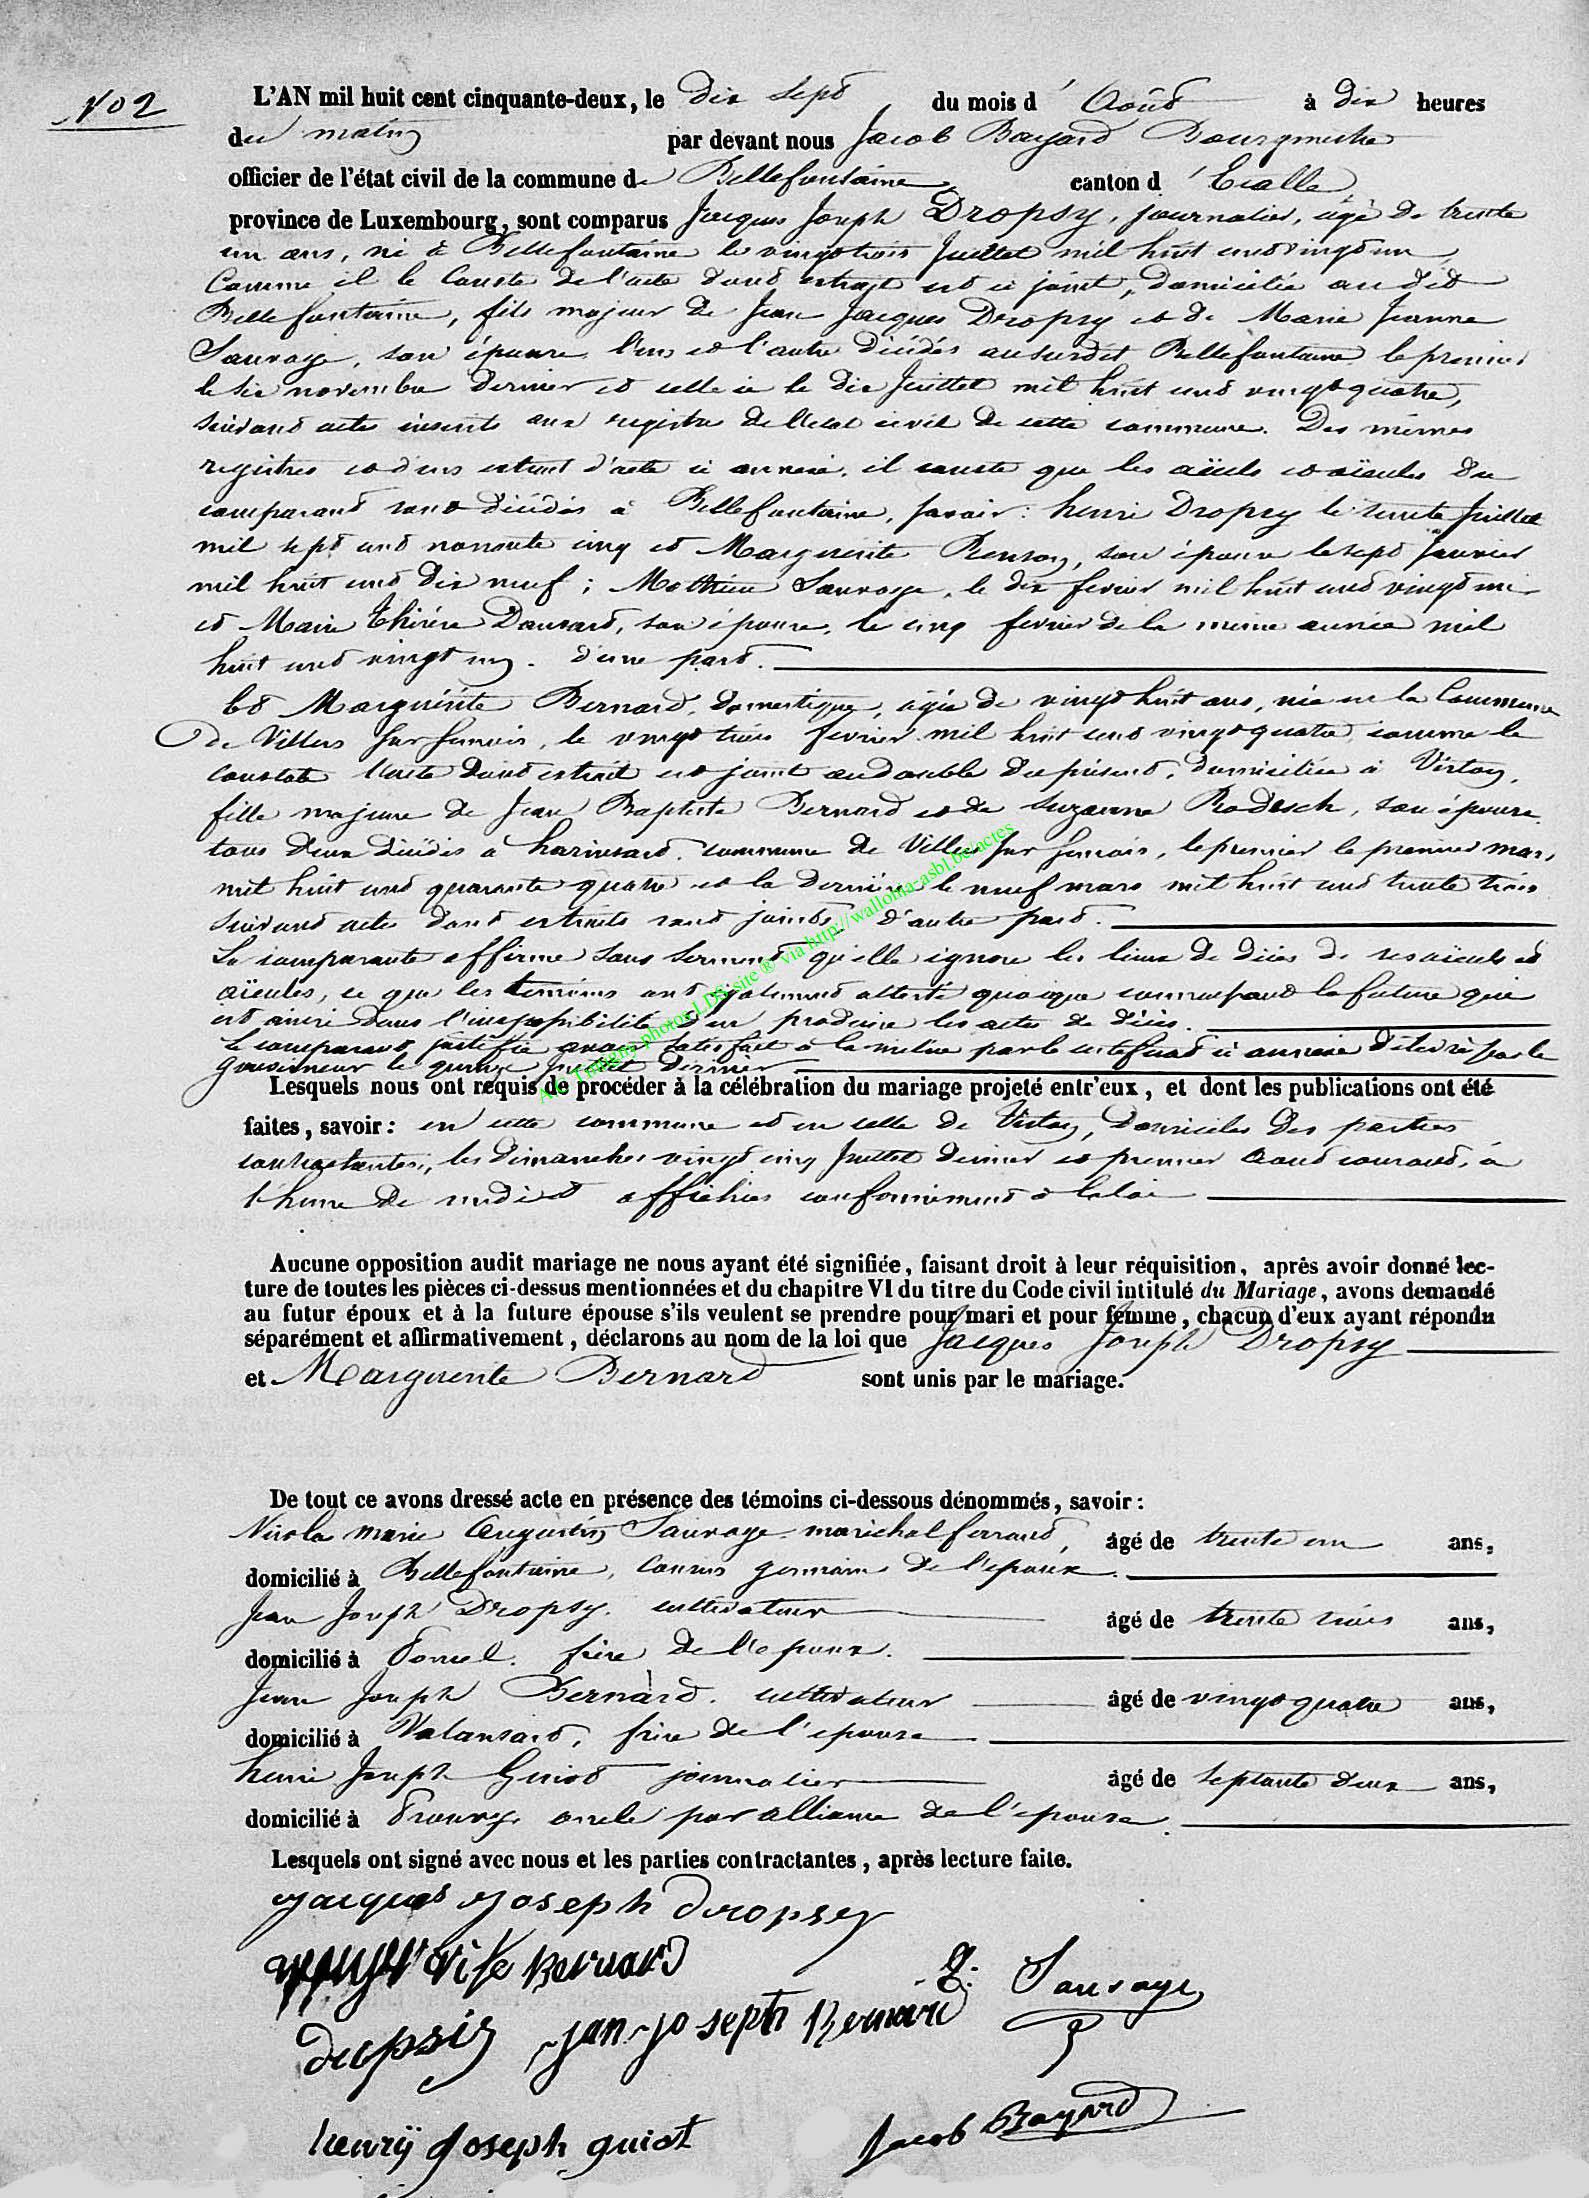 N° 2
L'AN mil huit cent cinquante-deux, le dix sept du mois d' Août à dix heures
du matin par devant nous Jacob Bayard Bourgmestre
officier de l'état civil de la commune de Bellefontaine canton d' Etalle
province de Luxembourg, sont comparus Jacques Joseph Dropsy, journalier, agé de trente
un ans, né à Bellefontaine le vingt trois Juillet mil huit cent vingt un,
comme il le conste de l'acte dont extrait est ci joint, domicilié au dit
Bellefontaine, fils majeur de Jean Jacques Dropsy et de Marie Jeanne
Sauvage, son épouse, l'un et l'autre décédés au susdit Bellefontaine, le premier
le six novembre dernier et celle ci le dix Juillet mil huit cent vingt quatre,
suivant actes inscrits aux registres de l'état civil de cette commune. Des mêmes
registres et d'un extrait d'acte ci annexé, il conste que les aïeuls et aïeules du
comparant sont décédés à Bellefontaine, savoir : henri Dropsy le trente Juillet
mil sept cent nonante cinq et Marguerite Renson, son épouse le sept Janvier
mil huit cent dix neuf ; Mathieu Sauvage, le dix fevrier mil huit cent vingt un
et Marie Thérèse Dansard, son épouse, le cinq fevrier de la meme année mil
huit cent vingt un. d'une part.
Et Marguerite Bernard, domestique, agée de vingt huit ans, née en la Commune
de Villers sur Semois, le vingt trois fevrier mil huit cent vingt quatre, comme le
constate l'acte dont extrait est joint au double du présent, domiciliée à Virton,
fille majeure de Jean Baptiste Bernard et de Suzanne Rodesch, son épouse
tous deux décédés à harinsard, commune de Villers sur Semois, le premier le premier mars
mil huit cent quarante quatre et la dernière le neuf mars mil huit cent trente trois
suivant actes dont extraits sont joints, d'autre part.
La comparante affirme sous serment qu'elle ignore les lieux de décès de ses aïeuls et
aïeules, ce que les témoins ont egalement attesté quoique connaissant la future qui
est ainsi dans l'impossibilité d'en produire les actes de décès.
Le comparant justifie avoir satisfait à la milice par le certificat ci annexé délivré par le
gouverneur le quinze Juillet dernier
Lesquels nous ont requis de procéder à la célébration du mariage projeté entr'eux, et dont les publications ont été
faites, savoir : en cette commune et en celle de Virton, domiciles des parties
contractantes, les dimanches vingt cinq Juillet dernier et premier Aout courant, à
l'heure de midi et affichées conformément à la loi
Aucune opposition audit mariage ne nous ayant été signifiée, faisant droit à leur réquisition, après avoir donné lec-
ture de toutes les pièces ci-dessus mentionnées et du chapitre VI du titre du Code civil intitulé du Mariage, avons demandé
au futur époux et à la future épouse s'ils veulent se prendre pour mari et pour femme, chacun d'eux ayant répondu
séparément et affirmativement, déclarons au nom de la loi que Jacques Joseph Dropsy
et Marguerite Bernard sont unis par le mariage.
De tout ce avons dressé acte en présence des témoins ci-dessous dénommés, savoir :
Nicolas marie Augustin Sauvage maréchal ferrand, âgé de trente un ans,
domicilié à Bellefontaine, cousin germain de l'epoux.
Jean Joseph Dropsy, cultivateur âgé de trente trois ans,
domicilié à frère de l'epoux.
Jean Joseph Bernard, cultivateur âgé de vingt quatre ans,
domicilié à Valansard, frère de l'epouse
henri Joseph Guiot journalier âgé de septante deux ans,
domicilié à Prouvy, oncle par alliance de l'épouse.
Lesquels ont signé avec nous et les parties contractantes, après lecture faite.
Jacques Joseph dropsy
Bernard
E. Sauvage
dropsis jan joseph Bernard
henrÿ Joseph guiot
Jacob Bayard
via http://wallonia-asbl.be/actes